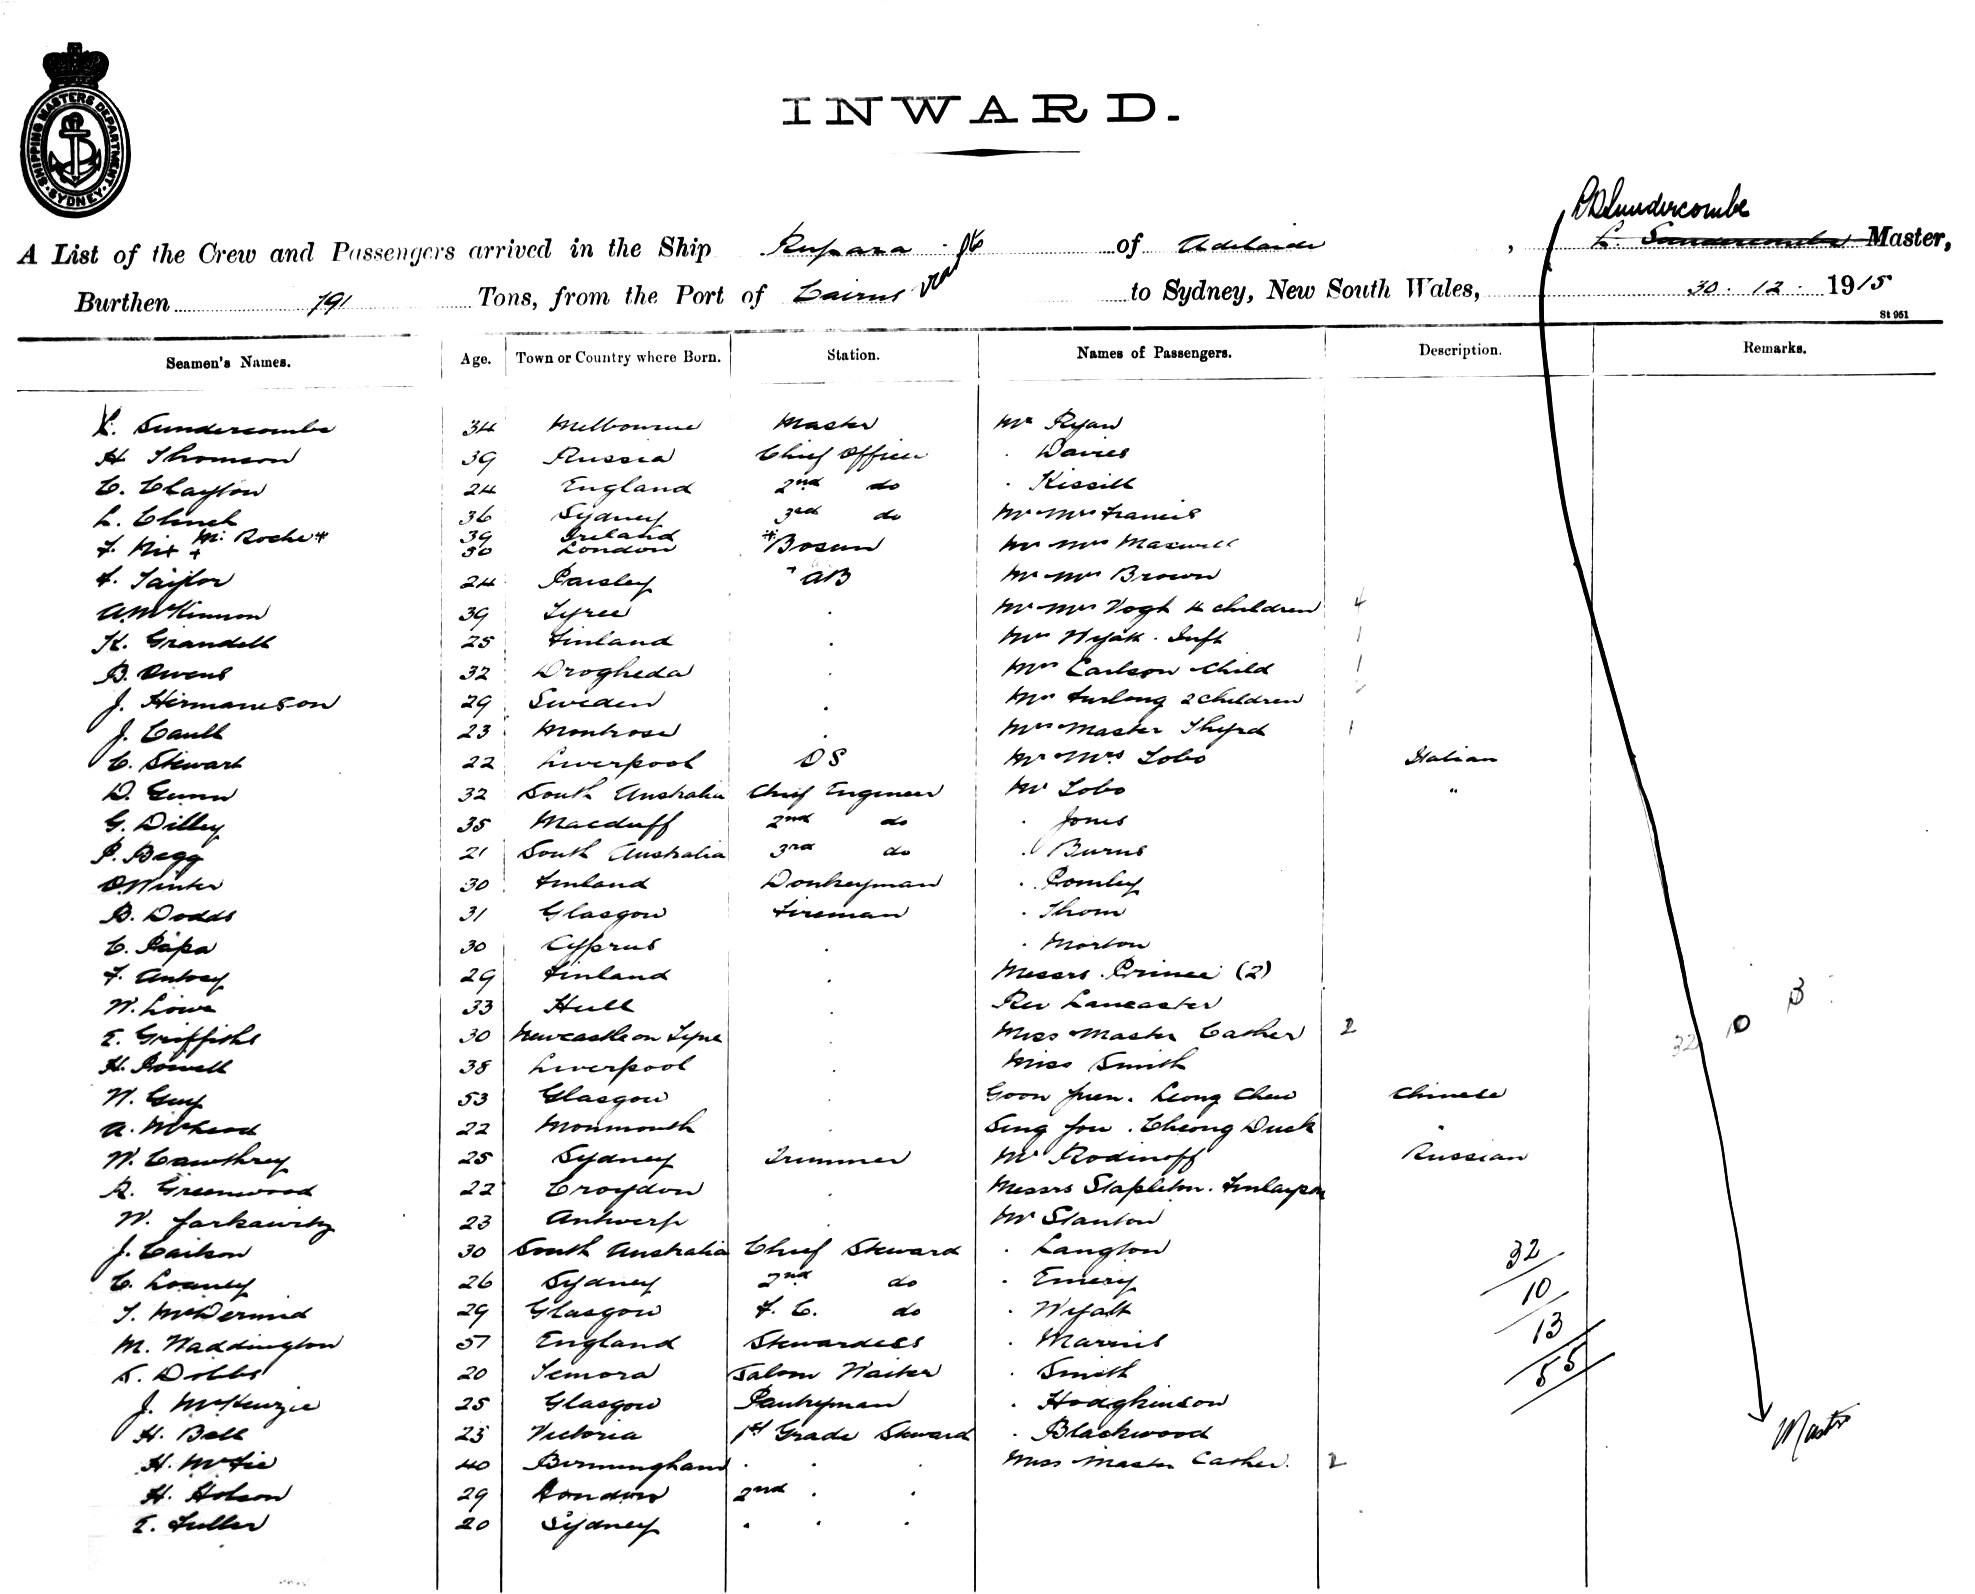 SHIPPING MASTERS DEPARTMENT · SYDNEY ·
INWARD.
A List of the Crew and Passengers arrived in the Ship Rupara of Adelaide, L. Sundercombe Master,
Burthen 791 Tons, from the Port of Cairns via to Sydney, New South Wales, 30. 12. 1915
St 961
Seamen's Names. Age. Town or Country where Born. Station. Names of Passengers. Description. Remarks.
L. Sundercombe 34 Melbourne Master Mr Ryan
H Thomson 39 Russia Chief Officer . Davies
C. Clayton 24 England 2nd do . Kissill
L. Clinch 36 Sydney 3rd do Mr Mrs Francis
M. Roche * 39 Ireland
F. Nix + 50 London * Bosun Mr Mrs Maxwell
F. Taylor 24 Paisley " AB Mr Mrs Brown
A. McKinnon 39 Tyree . Mr Mrs Vogh 4 children 4
K. Grandell 25 Finland . Mrs Wyatt . Inft 1
B. Owens 32 Drogheda . Mrs Carlson Child 1
J. Hermanson 29 Sweden . Mrs Furlong 2 children
J. Cault 23 Montrose . Mrs Master 1
C. Stewart 22 Liverpool OS Mr Mrs Lobo Italian
D. Gunn 32 South Australia Chief Engineer Mr Lobo "
G. Dilley 35 Macduff 2nd do . Jones
P. Begg 21 South Australia 3rd do . Burns
O. Winter 30 Finland Donkeyman . Romley
B. Dodds 31 Glasgow Fireman . Thom
C. Papa 30 Cyprus . . Morton
F. 29 Finland . Messrs. Prince (2)
W. Lowe 33 Hull . Rev Lancaster
E. Griffiths 30 Newcastle on Tyne . Miss Master Casher 2
H. Powell 38 Liverpool . Miss Smith
W. Guy 53 Glasgow . Goon Leong Chew Chinese
A. McLeod 22 Monmouth . Sing . Cheong Duck "
W. Cawthrey 25 Sydney Trimmer Mr Rodinoff Russian
R. Greenwood 22 Croydon . Messrs Stapleton. Finlayson
W. 23 Antwerp . Mr Stanton
J. Carlson 30 South Australia Chief Steward . Langton
C. Looney 26 Sydney 2nd do . Emery
T. McDermid 29 Glasgow F. C. do . Wyatt
M. Waddington 57 England Stewardess .
S. Dobbs 20 Temora Saloon Waiter . Smith
J. McKenzie 25 Glasgow Pantryman . Hodgkinson
H. Bell 23 Victoria 1st Grade Steward . Blackwood
H. McFie 40 Birmingham . . . Miss Master Casher. 2
H. Hobson 29 London 2nd . .
E. Fuller 20 Sydney . . .
32
10
13
55
32 10 13
Master